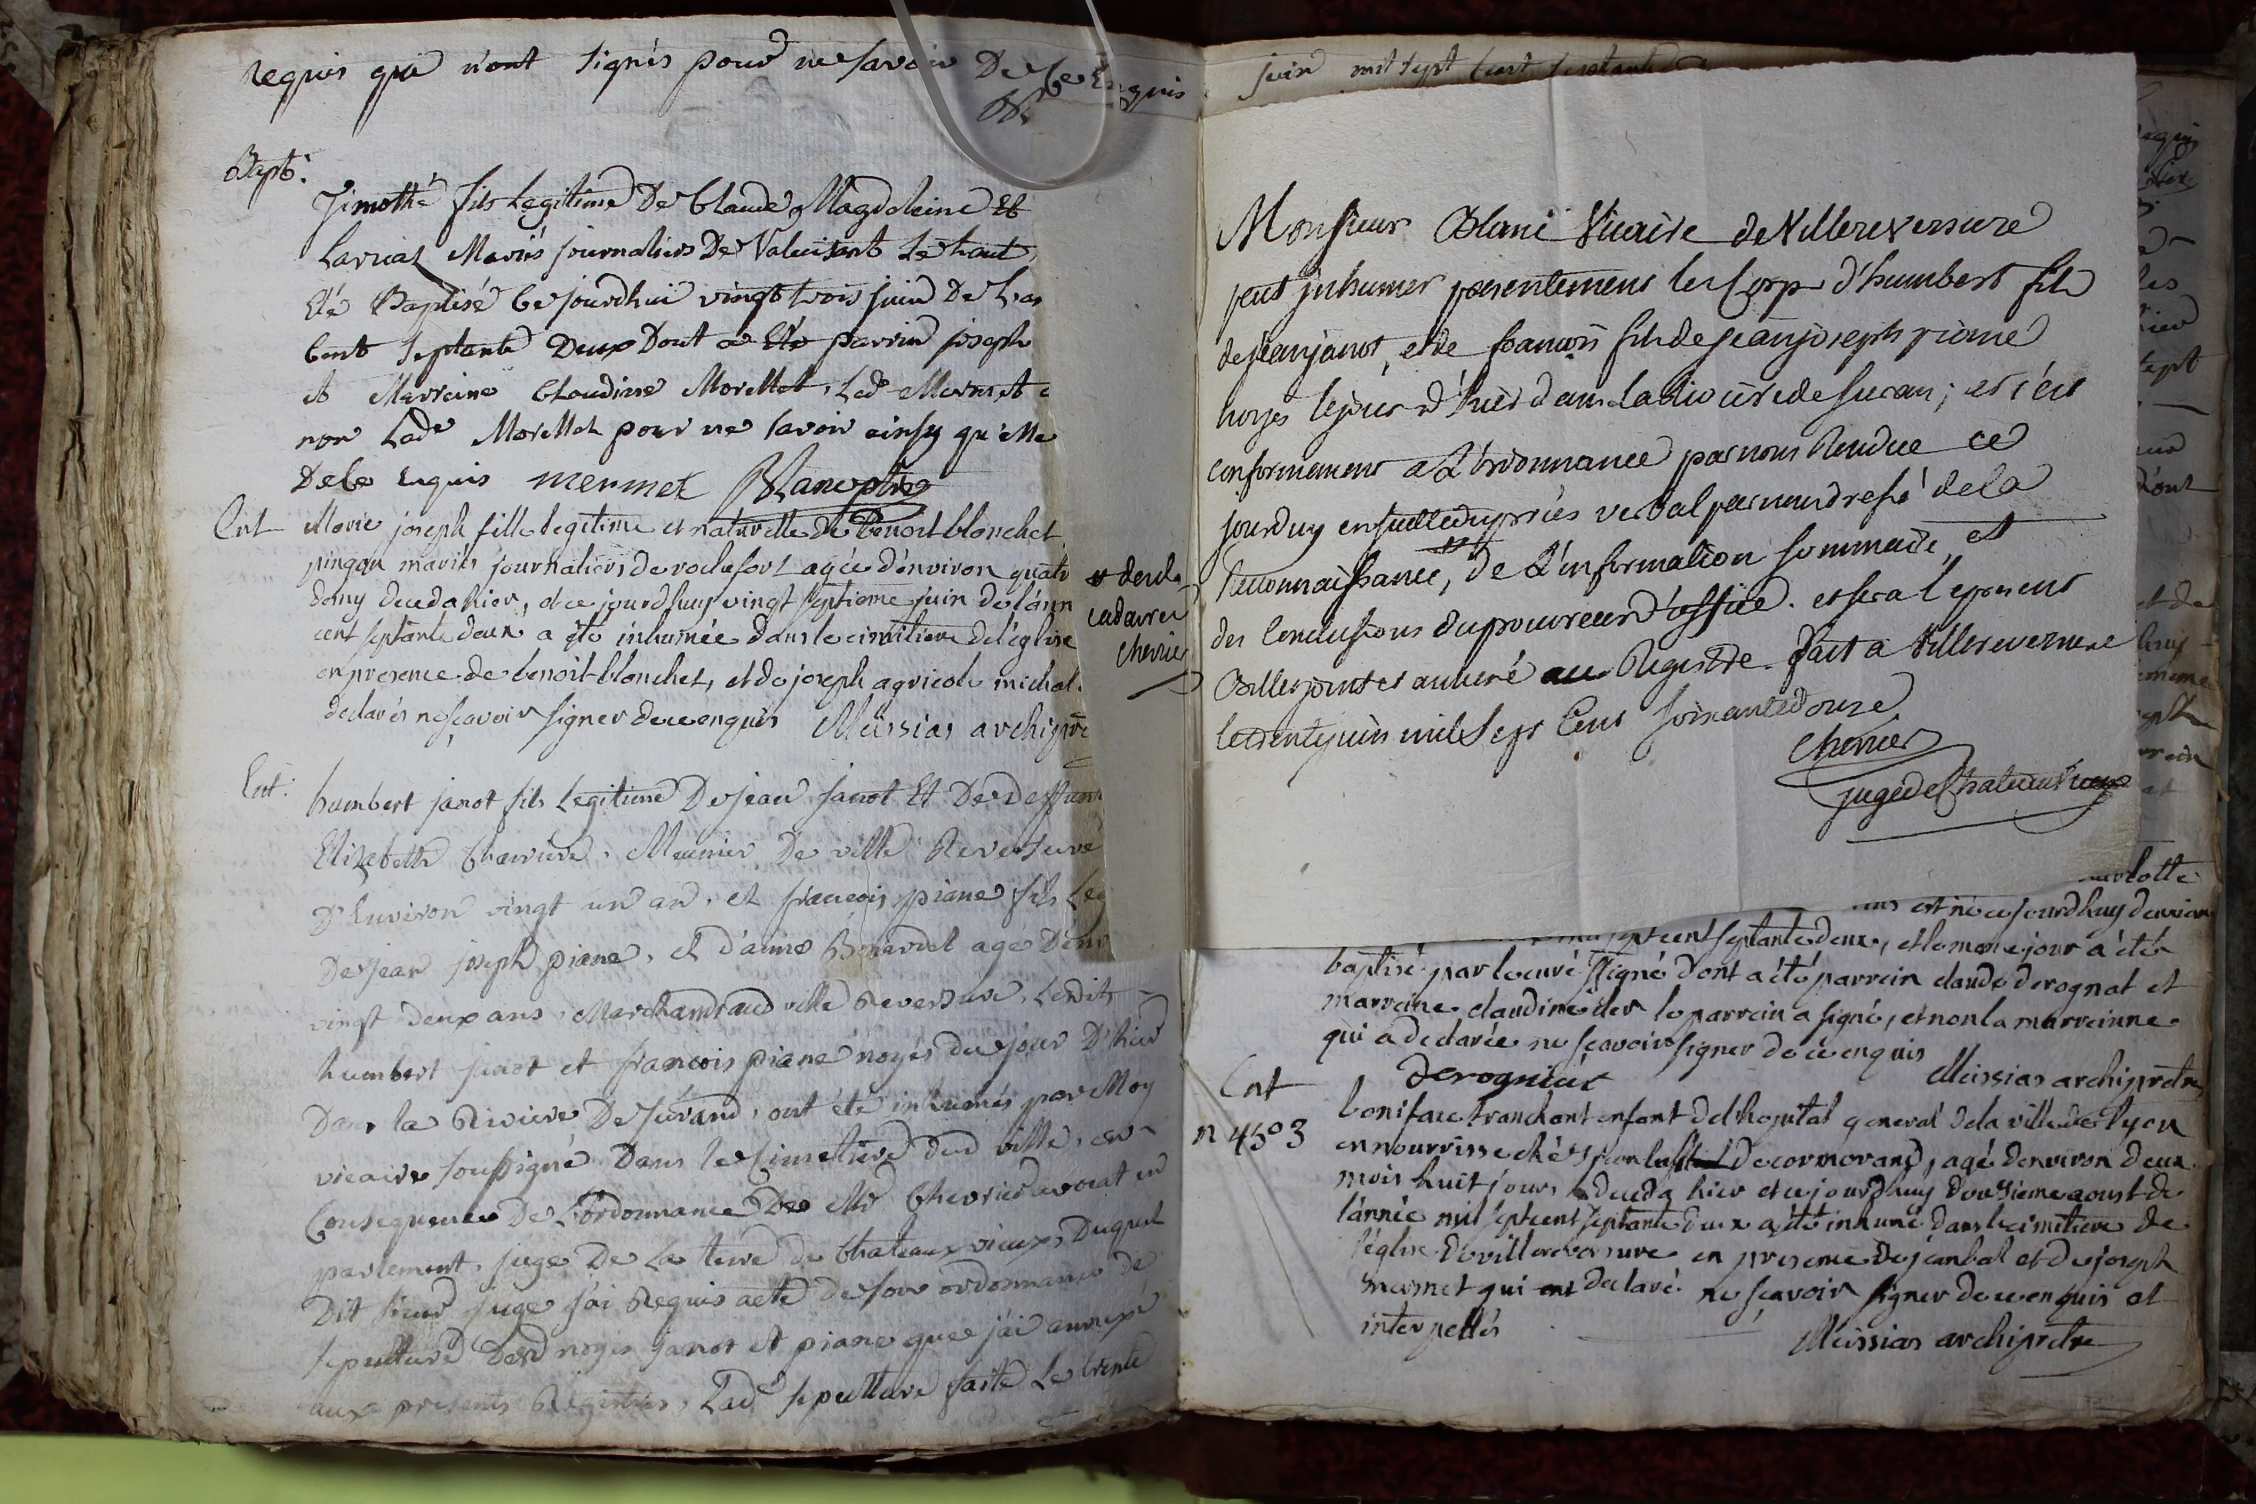 requis qui n'ont signés pour ne savoir De ce Enquis
Bapt:
Timothé fils Legitime De Claude Magdeleine Et
Larriaz Mariés journaliers De Valuisant Le haut
Eté Baptisé Ce jourdhui vingt trois juin De L'an
Cent septante Deux Dont a Eté parrin joseph
et Marreine Claudine Morellet, Led Mermet
non Lade Morellet pour ne savoir ainsy qu'elle
De ce enquis mermet Blanc ptre
Ent
Marie joseph fille legitime et naturelle de Benoit blonchet
pingon mariés journaliers de rochefort agée d'environ quatr
demy deceda hier, et ce jourdhuy vingt septieme juin de l'ann
cent septante deux a été inhumée dans le cimitiere de l'église
en presence de benoit blonchet, et de joseph agricole michal
declarés ne sçavoir signer de ce enquis Meissias archiprê
Ent:
humbert janot fils Legitime De jean janot Et De deffun
Elizabeth Charriere, Meunier De ville Reversure
D'Environ vingt un an, et francois piane fils Leg
De jean joseph piane, et d'anne Benardet agé D'env
vingt deux ans, Marchand aud ville Reversure, Lesdits
humbert janot et francois piane noyés du jour D'hier
Dans la Riviere De surand, ont été inhumés par Moy
vicaire soussigné Dans le Cimetiere dud ville, en
Consequence De L'ordonnance De Mr Chevrier avocat en
parlement, juge De La terre de Chateauxvieux, Duquel
Dit sieur juge j'ai Requis acte de son ordonnance de
sepulture Desd noyés janot et piane que j'ai annexé
aux presents Registres, Lade sepulture faite Le trente
# de de
cadavre
chevrier
juin mil sept cent septante
Monsieur Blanc Vicaire de Villereversure
peut jnhumer presentement les Corps d'humbert fils
de jean janot, et de francois fils de jean joseph piane
noyés le jour d'hier dans la riviere de suran; et c'est
conformement a L'ordonnance par nous Rendue ce
jourduy ensuitte du procès verbal par nous dressé de la
Reconnaissance, # de L'information sommaire, et
des Conclusions du procureur d'office. et sera le present
Billet joint et annexé au Registre. fait a Villereversure
le trente juin mil sept Cent soixante douze
Chevrier
juge de Chateauvieux
est né ce jourdhuy
cent septante deux, et le meme jour a été
baptisé par le curé signé dont a été parrein claude derognat et
marreine claudine der le parrein a signé, et non la marreinne
qui a declarée ne sçavoir signer de ce enquis
derogniat Meissias archiprêtre
Ent
n 4503
boniface tranchant enfant de l'hopital general de la ville de Lyon
en nourrisse chés de cormorand, agé d'environ deux
mois huit jours, deceda hier et ce jourdhuy douzieme aoust de
l'année mil sept cent septante deux a été inhumé dans le cimitiere de
l'église de villereversure en presence de jean bal et de joseph
mermet qui ont declaré ne sçavoir signer de ce enquis et
interpellés
Meissias archiprêtre